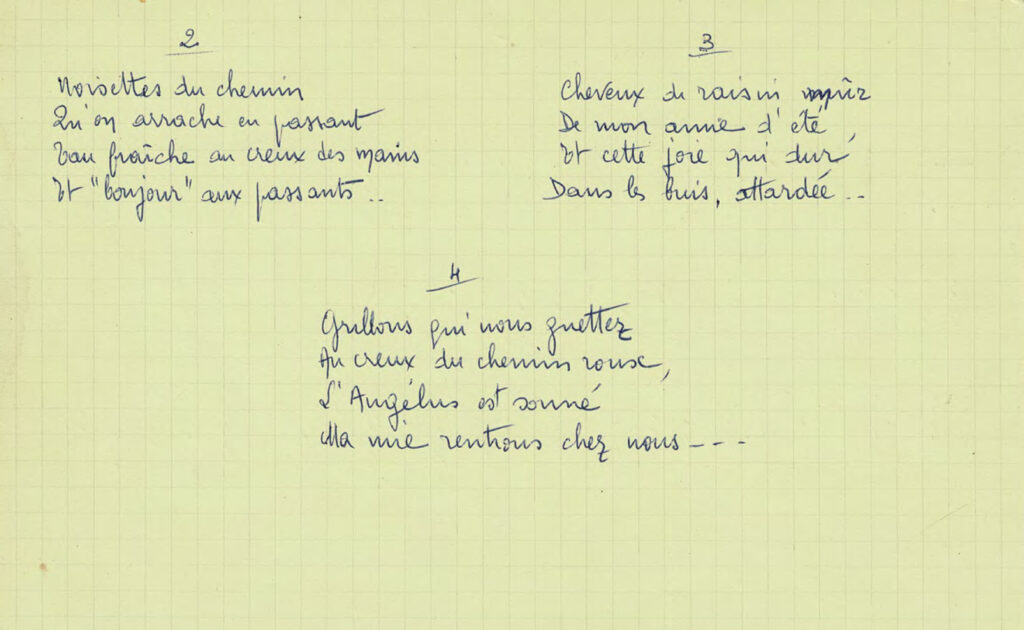 2
Noisettes du chemin
Qu'on arrache en passant
Eau fraîche au creux des mains
Et "bonjour" aux passants..
3
Cheveux de raisin mûr
De mon amie d'été,
Et cette joie qui dur
Dans les buis, attardée..
4
Grillons qui nous guettez
Au creux du chemin roux,
L'Angélus est sonné
Ma mie rentrons chez nous ----